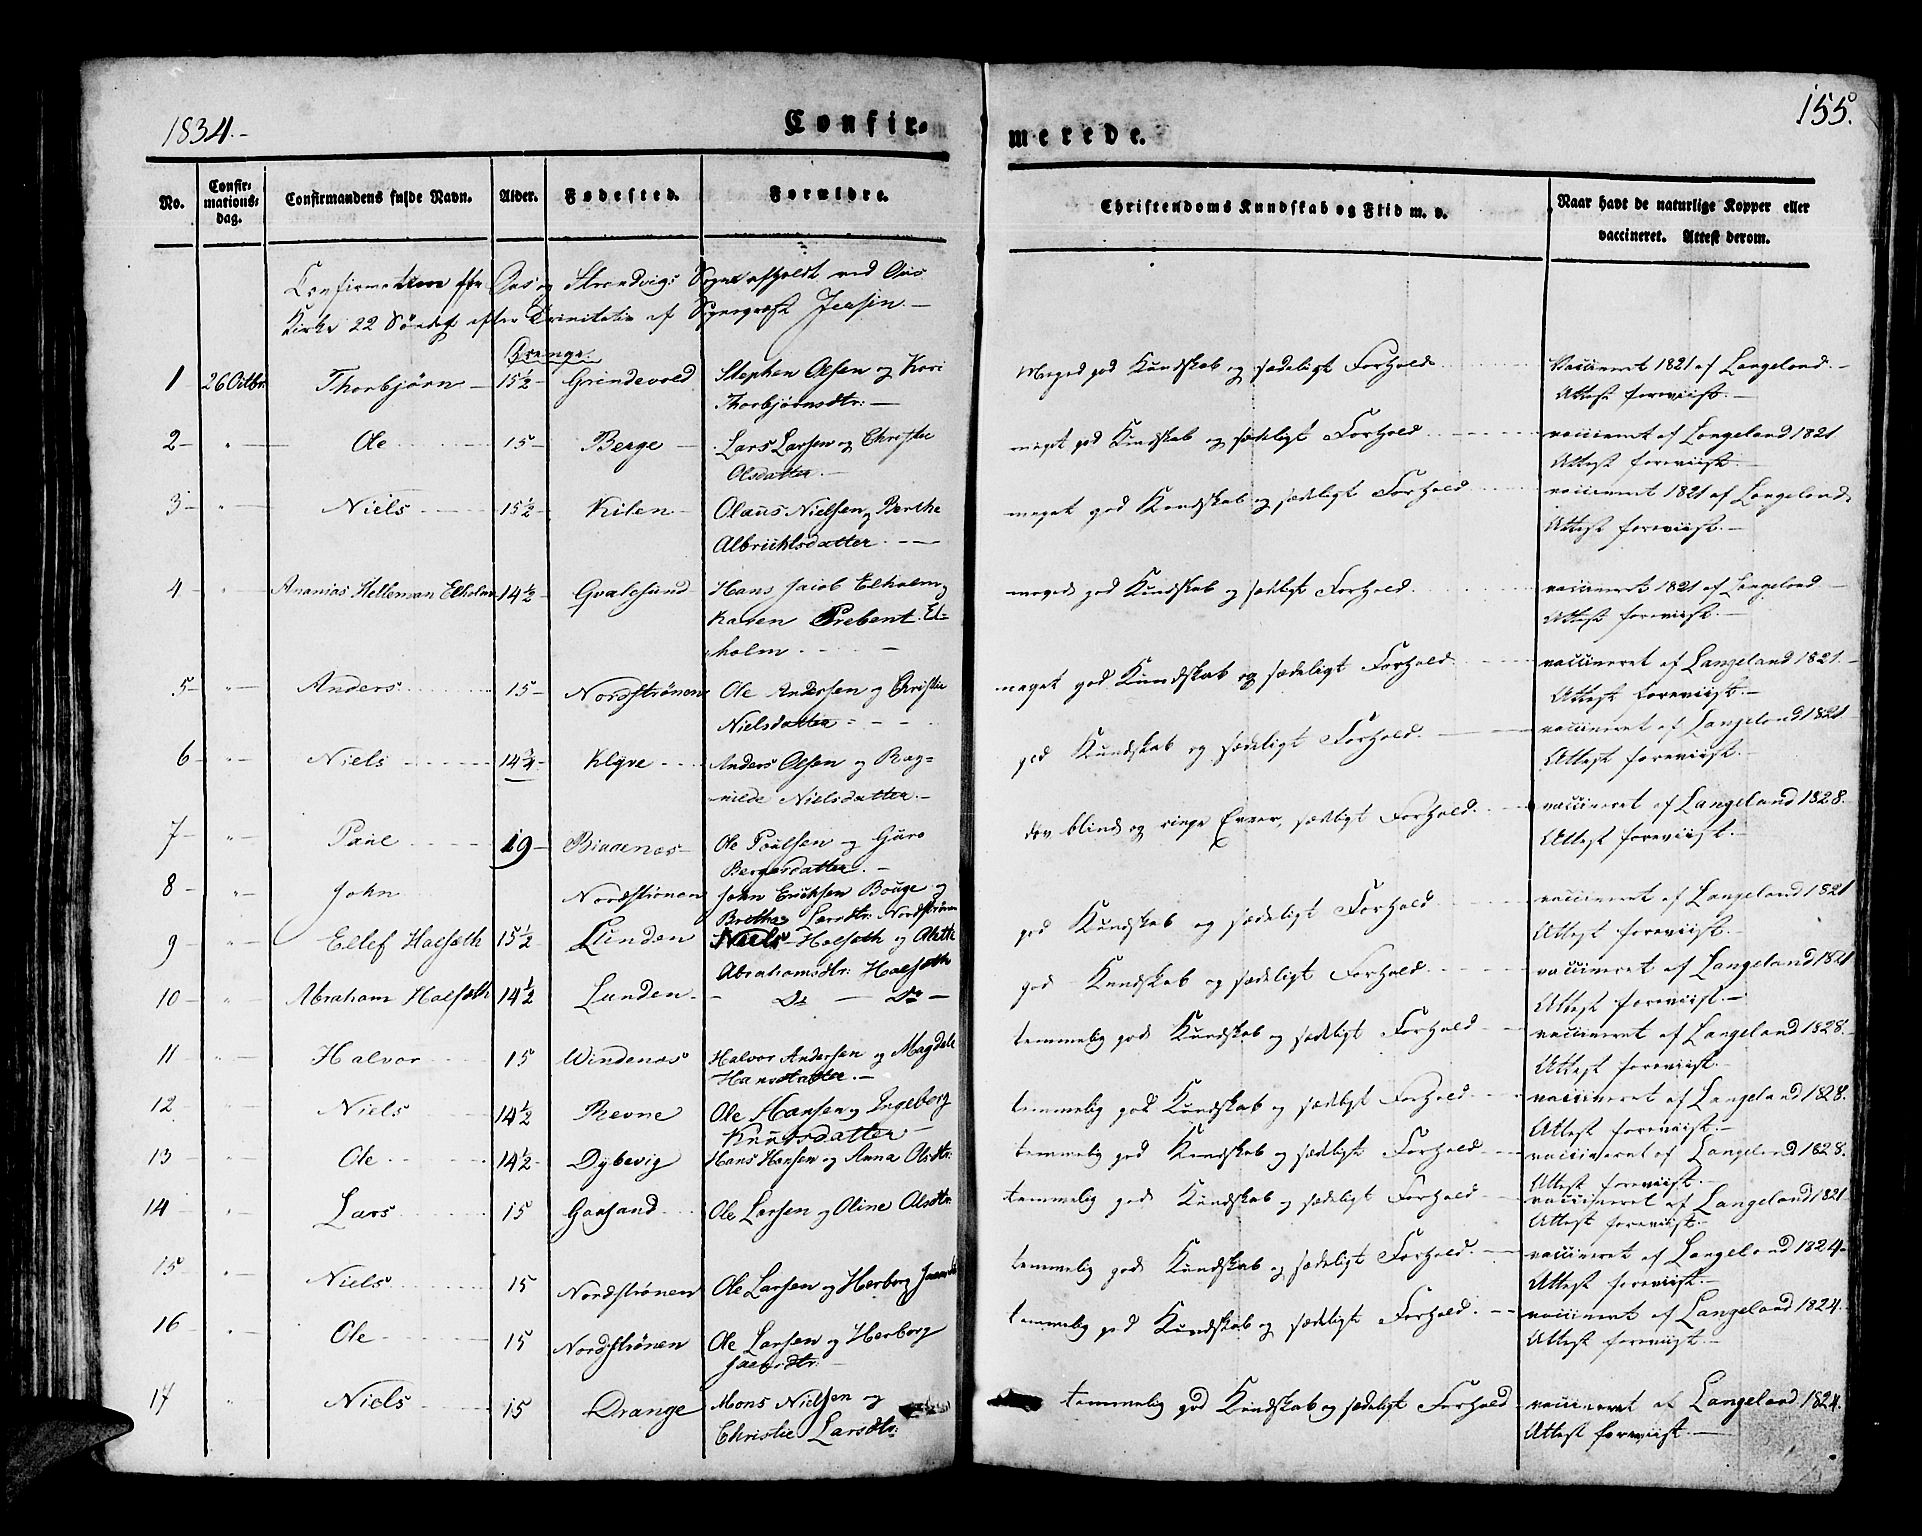 1834.-
Confir-
merede.
155.
No.
Confir-
mations-
dag.
Confirmandens fulde Navn.
Alder.
Fødested.
Forældre.
Christendoms Kundskab og Flid m. v.
Naar havt de naturlige Kopper eller
vaccineret. Attest derom.
Confirmation for Oos og Strandvigs Sogne afholdt ved Oos
Kirke 22 Søndag efter Trinitatis af Sognepræst Jersin.-
Drenge.
1 26 Octbr. Thorbjörn 15½ Grindevold Stephen Olsen og Kari Meget god Kundskab og sædeligt Forhold Vaccineret 1821 af Langeland.
Thorbjörnsdtr: Attest foreviist.
2 " Ole 15 Berge Lars Larsen og Christie meget god Kundskab og sædeligt Forhold vaccineret af Langeland 1821
Olsdatter. Attest foreviist.
3 " Niels 15½ Kilen Olaus Nielsen og Berthe meget god Kundskab og sædeligt Forhold vaccineret 1821 af Langeland
Albrichtsdatter. Attest foreviist.
4 " Ananias Kelleman Elholm 14½ Gvalesund Hans Jacob Elholm og meget god Kundskab og sædeligt Forhold vaccineret 1821 af Langeland
Karen Prebent El- Attest foreviist.
holm
5 " Anders 15 Nordströnen Ole Andersen og Christie meget god Kundskab og sædeligt Forhold vaccineret af Langeland 1821.
Nielsdatter Attest foreviist.
6 " Niels 14¾ Klyve Anders Olsen og Rag- god Kundskab og sædeligt Forhold. vaccineret af Langeland 1821
nilde Nielsdatter. Attest foreviist.
7 " Paul 19 Ole Poulsen og Guro døv blind og ringe Evner, sædeligt Forhold. vaccineret af Langeland 1828.
Bergesdatter. Attest foreviist.
8 " John Nordströnen John Erichsen Bouge og god Kundskab og sædeligt Forhold vaccineret af Langeland 1821
Bretha Larsdtr: Nordströnen Attest foreviist.
9 " Ellef Halsæth 15½ Lunden Niels Halsæth og god Kundskab og sædeligt Forhold vaccineret af Langeland 1821
Abrahamsdtr: Halsæth Attest foreviist.
10 " Abraham Halsæth 14½ Lunden Do Do temmelig god Kundskab og sædeligt Forhold vaccineret af Langeland 1828.
Attest foreviist.
11 " Halvor 15 Windenæs Halvor Andersen og Magdele temmelig god Kundskab og sædeligt Forhold vaccineret af Langeland 1828.
Hansdatter. Attest foreviist.
12 " Niels 14½ Revne Ole Hansen og Ingeborg
Knutsdatter
13 " Ole 14½ Dybevig Hans Hansen og Anna Olsdtr: temmelig god Kundskab og sædeligt Forhold vaccineret af Langeland 1828.
Attest foreviist.
14 " Lars 15 Gaasand Ole Larsen og Oline Olsdtr: temmelig god Kundskab og sædeligt Forhold vaccineret af Langeland 1821.
Attest foreviist.
15 " Niels 15 Nordströnen Ole Larsen og Herborg temmelig god Kundskab og sædeligt Forhold. vaccineret af Langeland 1824.
Attest foreviist.
16 " Ole 15 Nordströnen Ole Larsen og Herborg temmelig god Kundskab og sædeligt Forhold. vaccineret af Langeland 1824.
Attest foreviist.
17 " Niels 15 Drange Mons Nielsen og temmelig god Kundskab og sædeligt Forhold vaccineret af Langeland 1824.
Christie Larsdtr: Attest foreviist.